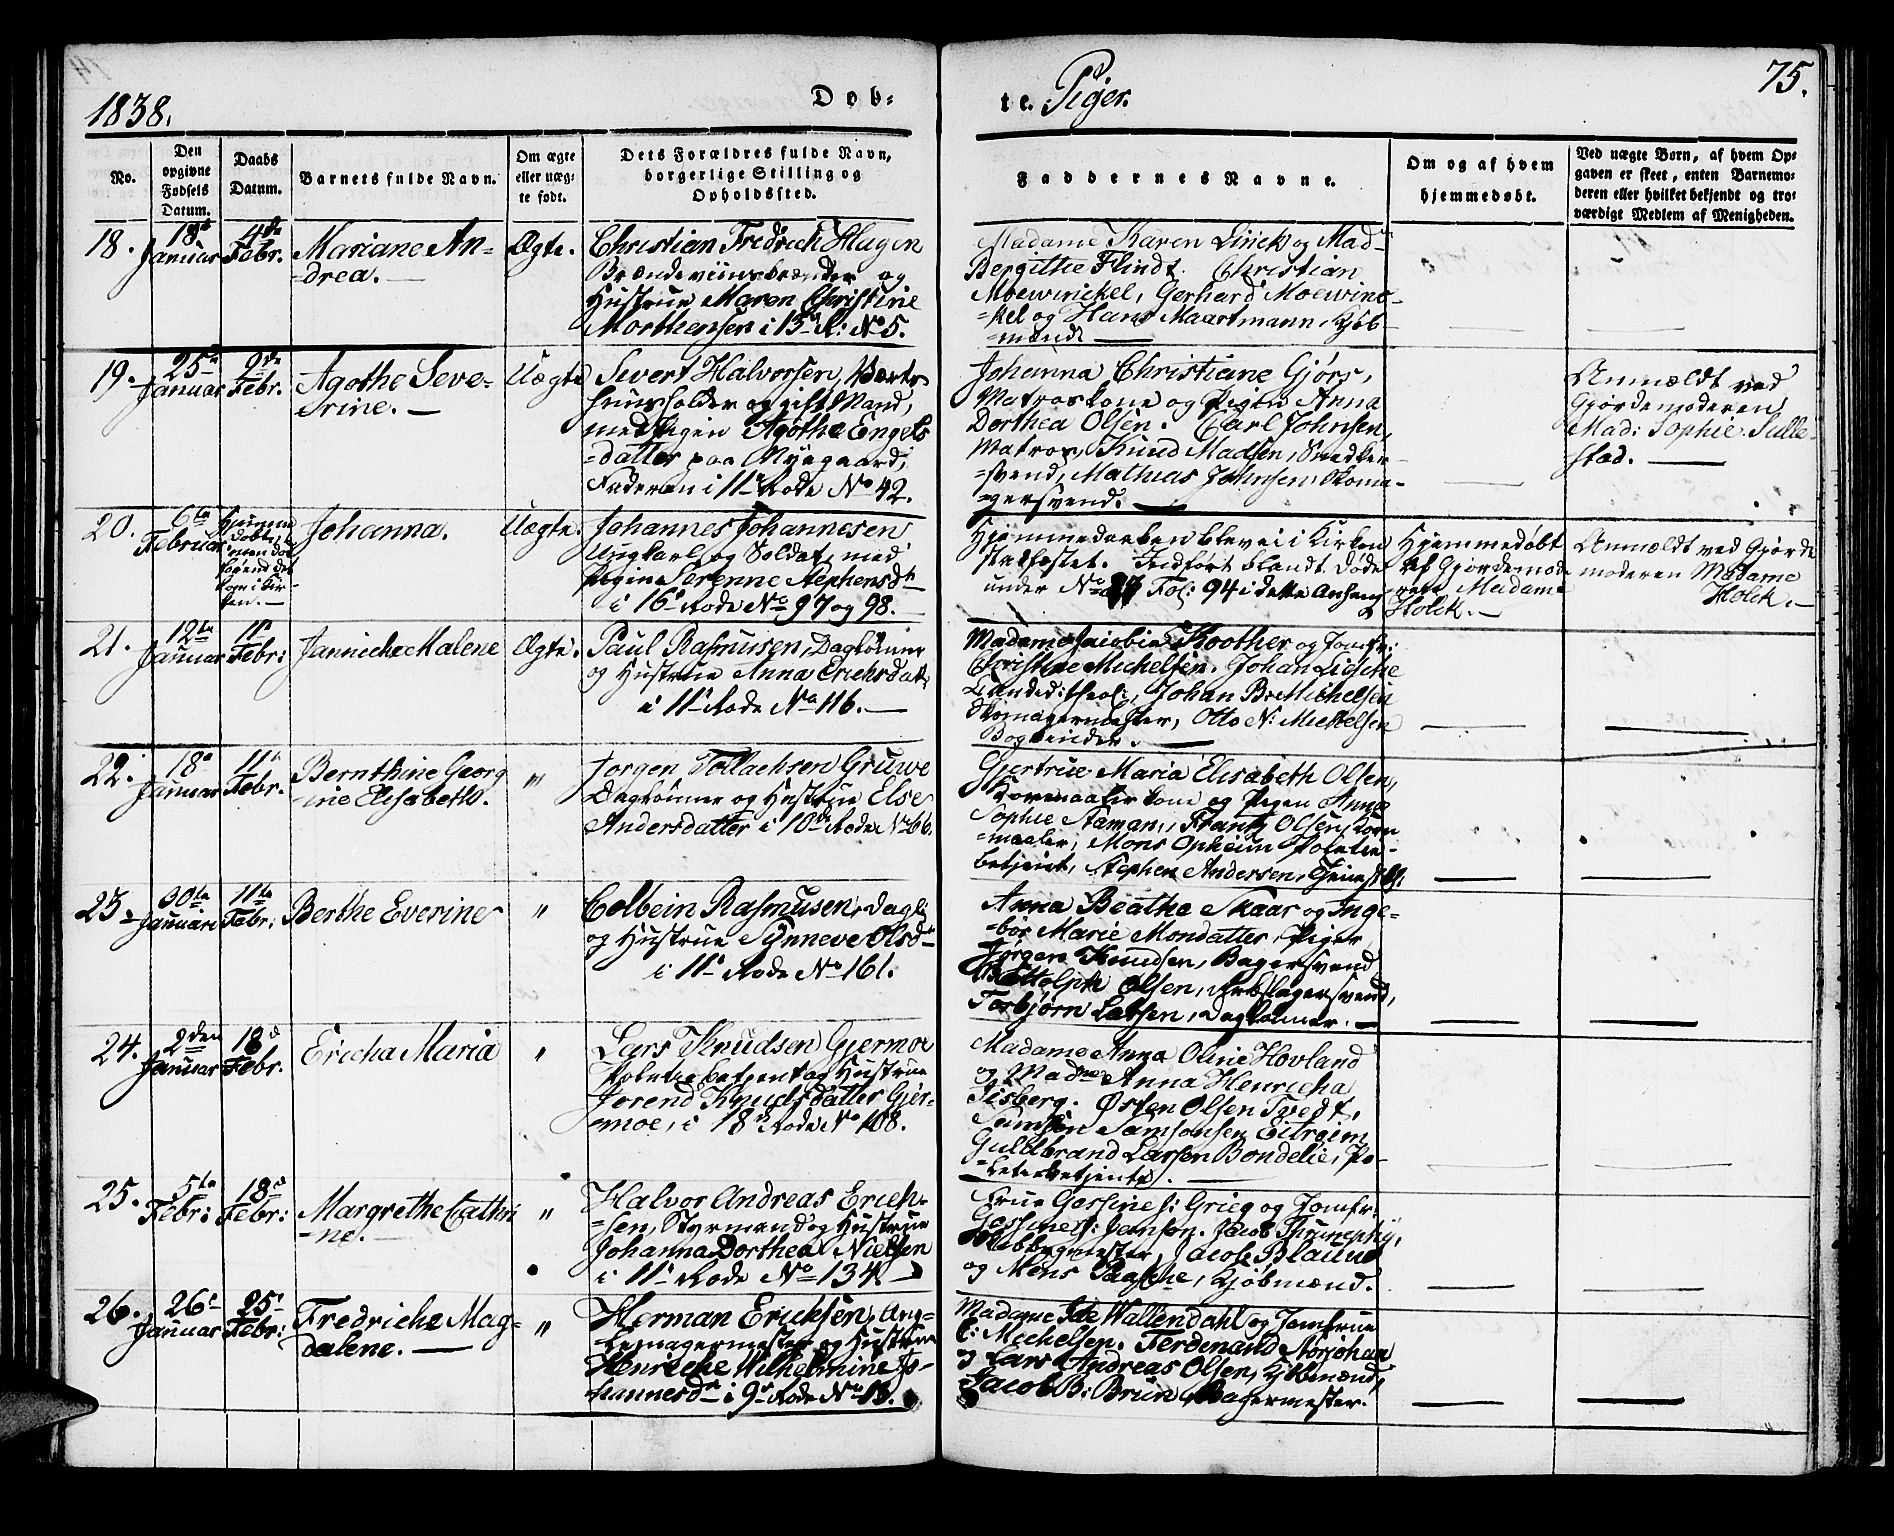 1838.
Døb-
te. Piger.
75.
No.
Den opgivne Fødsels Datum.
Daabs Datum.
Barnets fulde Navn.
Om ægte eller uægte født.
Dets Forældres fulde Navn, borgerlige Stilling og Opholdssted.
Faddernes Navne.
Om og af hvem hjemmedøbt.
Ved uægte Børn, af hvem Opgaven er skeet, enten Barnemoderen eller hvilket bekjendt og troværdigt Medlem af Menigheden.
18. 18de Januar 4de Febr. Mariane An-
=drea. Ægte.
Christian Fredrich Hagen
Brændeviinsbrænder og
Hustrue Maren Christine
Morthensen i 15de R: No 5.
Madame Karen Linck og Mad=
Bergithe Flindt. Christian
Moewinckel, Gerhard Moewinc-
=kel og Hans Maartmann, Kjøb-
=mænd
19. 25de Januar 2de Febr. Agothe Seve-
=rine. Uægte
Sivert Halvorsen, Værts-
huusholder og gift Mand,
med Pigen Agothe Engels
=datter paa Nyegaard;
Faderen i 11te Rode No 42.
Johanna Christiane Gjørs,
Matroskone og Pigen Anna
Dorthea Olsen. Carl Johnsen,
Matros, Knud Madsen, Snedker-
=svend, Mathias Johnsen, Skoma-
=gersvend.
Anmældt ved
Gjordemoderen
Mad: Sophie Sulle-
stad.
20. 6te Februar Hjemme
døbt,
men
Kirken. Johanna. Uægte.
Johannes Johannesen
Ungkarl og Soldat, med
Pigen Serenne Stephensdr
i 16de Rode No 97 og 98.
Hjemmedaaben blev ei i Kirken
stadfæstet. Indført blandt Døde
under No Fol: 94 i dette Anhang
Hjemmedøbt
af Gjordemode
ren Madame
Holck.
Anmældt ved Gjorde
moderen Madame
Holck.
21. 12te Januar 11te Febr: Janniche Malene Ægte.
Paul Rasmusen, Daglønner
og Hustrue Anna Erichsdatr
i 11te Rode No 116.
Madame Jacobia Koother og Jomfr:
Christine Michelsen. Johan
Candid: theol:, Johan B. Michelsen
Skomagermester, Otto N: Michelsen
Bogbinder.
22. 18de Januar 11te Febr. Bernthine Georg
=ine Elisabeth. "
Jørgen Tollachsen Gruwe
Daglønner og Hustrue Else
Andersdatter i 10de Rode No 66.
Gjertrue Maria Elisabeth Olsen,
Kornmaalerkone og Pigen Anna
Sophie Staman, Frantz Olsen, Korn
=maaler, Mons Opheim Politie-
betjent, Stephen Andersen,
23. 30te Januari 11te Febr: Berthe Everine "
Colbein Rasmusen, Dagl:
og Hustrue Synneve Olsdr
i 11te Rode No 161.
Anna Beathe Skaar og Inge-
=bør Marie Mondatter, Piger
Jørgen Knudsen, Bagersvend
Botholph Olsen, Træslagersvend,
Torbjørn Larsen, Daglønner.
24. 2den Januar 18de Febr. Ericha Maria "
Lars Knudsen Gjermoe
Politiebetjent og Hustrue
Jorend Knudsdatter Gjer-
moe, i 18de Rode No 108.
Madame Anna Oline Hovland
og Madme Anna Henricha
Sisberg. Østen Olsen Tvedt,
Samson Samsonsen Eitreim
Guldbrand Larsen Bondelie, Po-
=letebetjente.
25. 5te Febr: 18de Febr: Margrethe Cathri
=ne. "
Halvor Andreas Erich-
=sen, Styrmand og Hustrue
Johanna Dorthea Nielsen
i 11te Rode No 134
Frue Gesine S: Grieg og Jomfr:
Gesine S: Janson. Jacob
Rebbegmester, Jacob Blauuw
og Mons Paasche, Kjøbmænd.
26. 26de Januar 25de Febr: Fredriche Mag-
dalene. "
Herman Ericksen, Ung-
=magermester og Hustrue
Henriche Wilhelmine Jo-
hannesdr i 9de Rode No 13.
Madame Ide Wallendahl og Jomfrue
C: Michelsen. Ferdinand Norjohan
og Lars Andreas Olsen, Kjøbmænd,
Jacob B: Bruun, Bagermester.